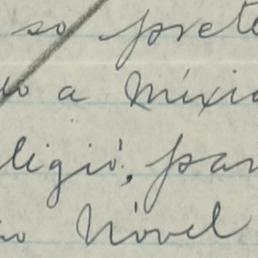 so prete
o a mixi
ligió, par
o Nóvel